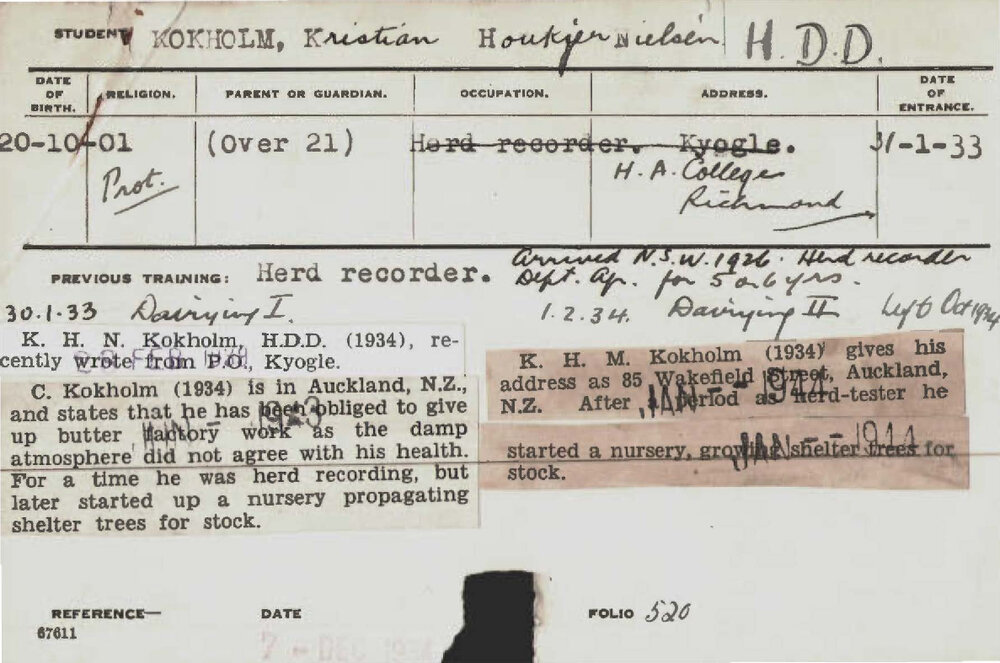 STUDENT KOKHOLM, Kristian Houkjer Nielsen H.D.D.
DATE OF BIRTH. RELIGION. PARENT OR GUARDIAN. OCCUPATION. ADDRESS. DATE OF ENTRANCE.
20-10-01 (Over 21) Herd recorder. Kyogle. 31-1-33
Prot. H. A. College
Richmond
Arrived N.S.W. 1926. Herd recorder
PREVIOUS TRAINING: Herd recorder. Dept. Ag. for 5 or 6 yrs.
30.1.33 Dairying I. 1.2.34. Dairying II Left Oct 1934
K. H. N. Kokholm, H.D.D. (1934), re-
cently wrote from P.O., Kyogle.
FEB
C. Kokholm (1934) is in Auckland, N.Z.,
and states that he has been obliged to give
up butter factory work as the damp
atmosphere did not agree with his health.
For a time he was herd recording, but
later started up a nursery propagating
shelter trees for stock.
K. H. M. Kokholm (1934) gives his
address as 85 Wakefield Street, Auckland,
N.Z. After a period as herd-tester he
JAN -- 1944
started a nursery, growing shelter trees for
stock.
JAN -- 1944
REFERENCE— DATE FOLIO 520
67611
7 - DEC 1934